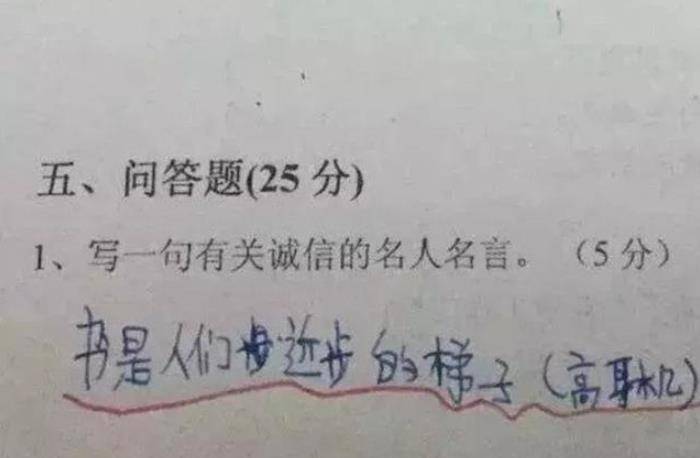 五、问答题(25 分)
1、写一句有关诚信的名人名言。（5 分）
书是人们进步的梯子（高耳机)